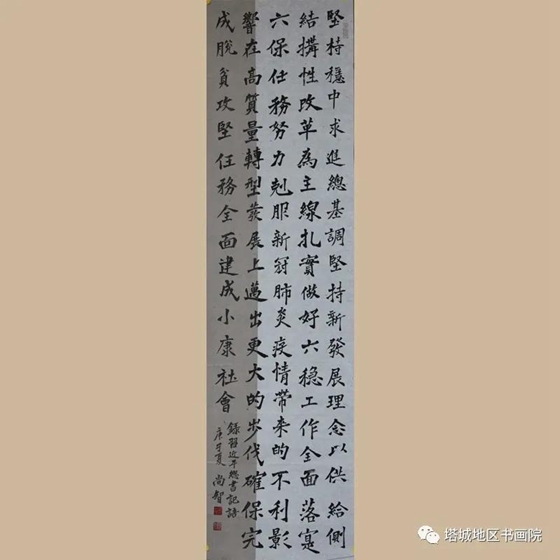 堅持穩中求進總基調堅持新發展理念以供給側
結搆性改革為主線扎實做好六穩工作全面落寔
六保任務努力剋服新冠肺炎疫情帶来的不利影
響在高質量轉型發展上邁出更大的步伐確保完
成脫貧攻堅任務全面建成小康社會
錄習近平總書記語
庚子夏 尚智
塔城地区书画院